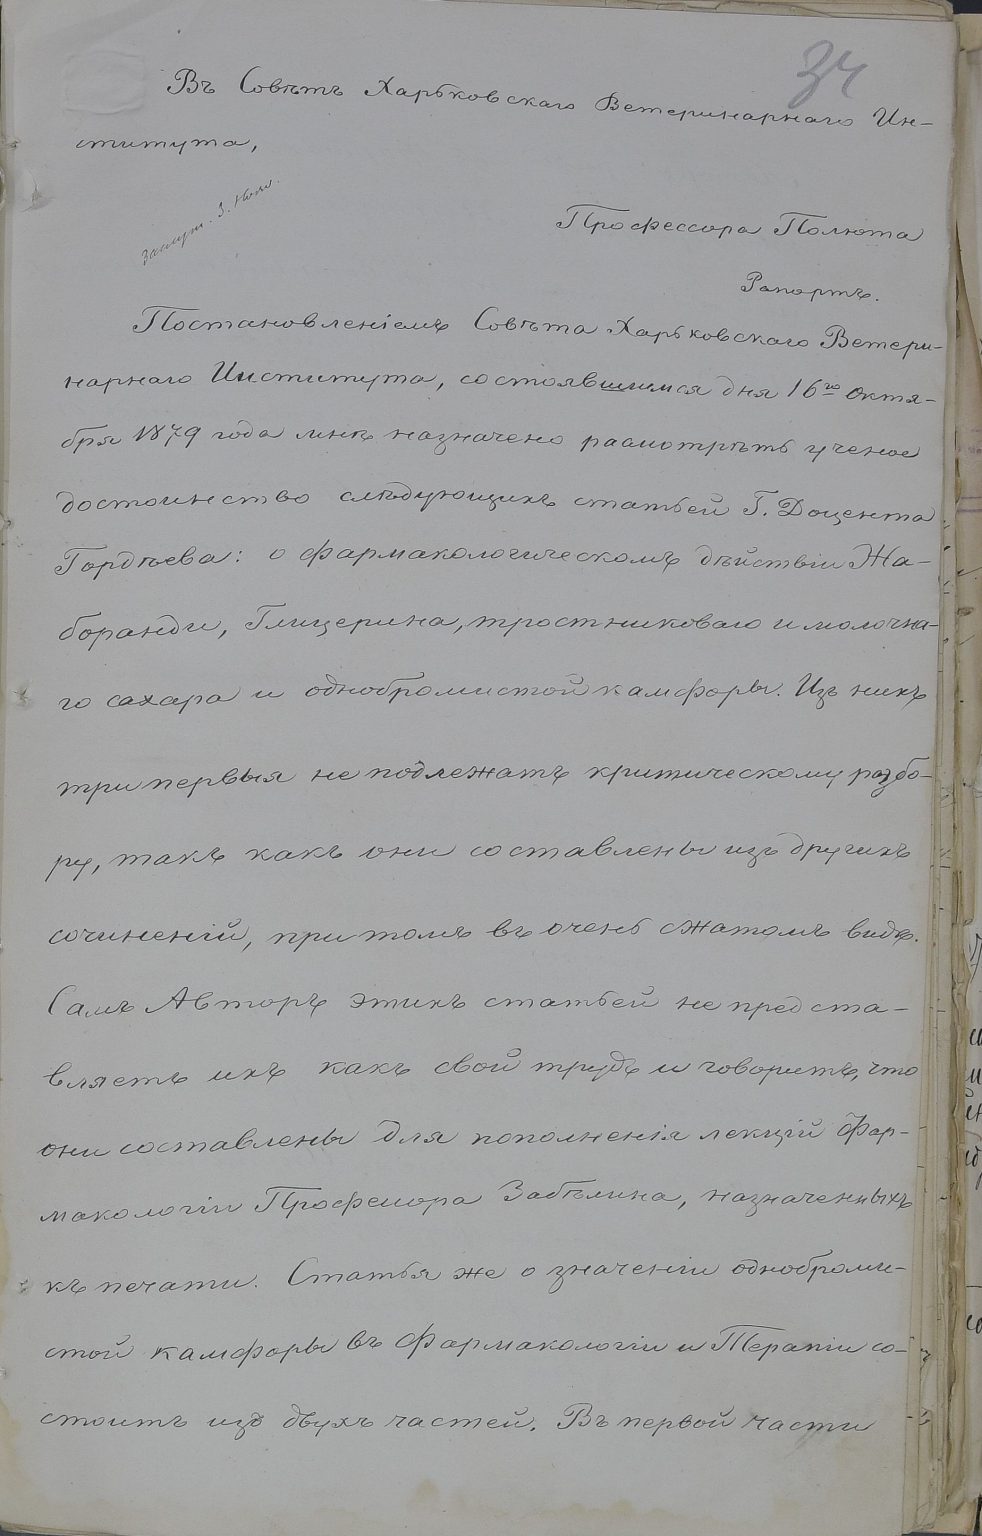 34
Въ Совѣтъ Харьковскаго Ветеринарнаго Ин-
ститута,
Профессора Полюта
Рапортъ.
Постановленіемъ Совѣта Харьковскаго Ветери-
нарнаго Института, состоявшимся дня 16го октя-
бря 1879 года мнѣ назначено расмотрѣть ученое
достоинство слѣдующихъ статьей Г. Доцента
Гордѣева: о фармакологическомъ дѣйствіи Жа-
боранди, Глицерина, тростниковаго и молочна-
го сахара и однобромистой камфоры. Изъ нихъ
три первыя не подлежатъ критическому разбо-
ру, такъ какъ они составлены изъ другихъ
сочиненій, притомъ въ очень сжатомъ видѣ.
Самъ Авторъ этихъ статьей не предста-
вляетъ ихъ какъ свой трудъ и говоритъ, что
они составлены для пополненія лекцій Фар-
макологіи Профессора Забѣлина, назначенныхъ
къ печати. Статья же о значеніи одноброми-
стой камфоры въ Фармакологіи и Терапіи со-
стоитъ изъ двухъ частей. Въ первой части